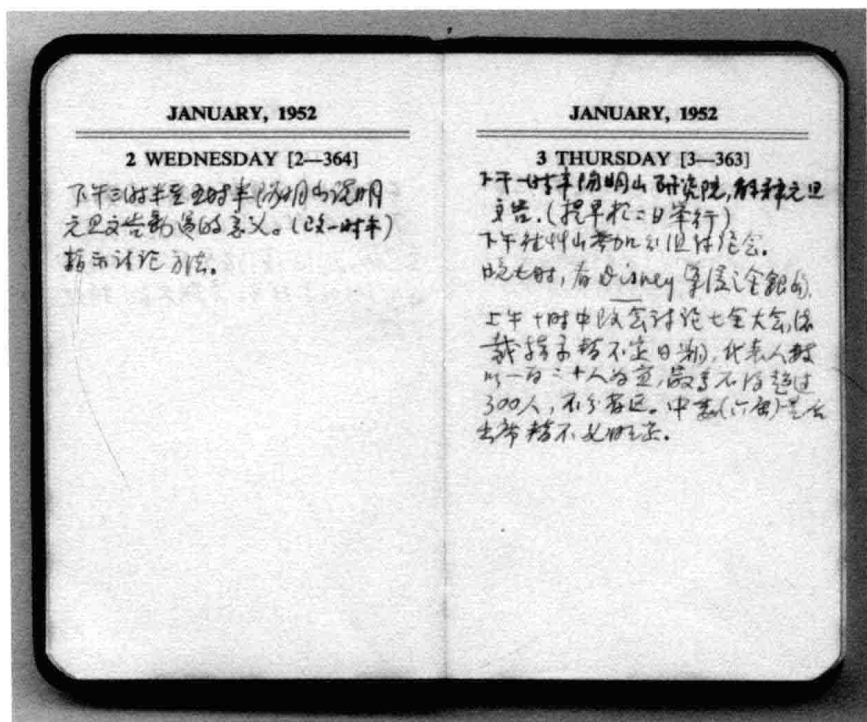 JANUARY, 1952
2 WEDNESDAY [2—364]
下午三时半至五时半阳明山说明
元旦文告勗勉的意义。(改一时半)
指示讨论方法。
JANUARY, 1952
3 THURSDAY [3—363]
下午一时半阳明山研究院,解释元旦
文告.(提早于二日举行)
下午往草山参加分组讨论会.
晚七时,看Disney 金银岛.
上午十时中改会讨论七全大会,总
裁指示暂不定日期,代表人数
以一百二十人为宜,最多不得超过
300人,不分普区。中委(六届)是否
出席暂不必明定.